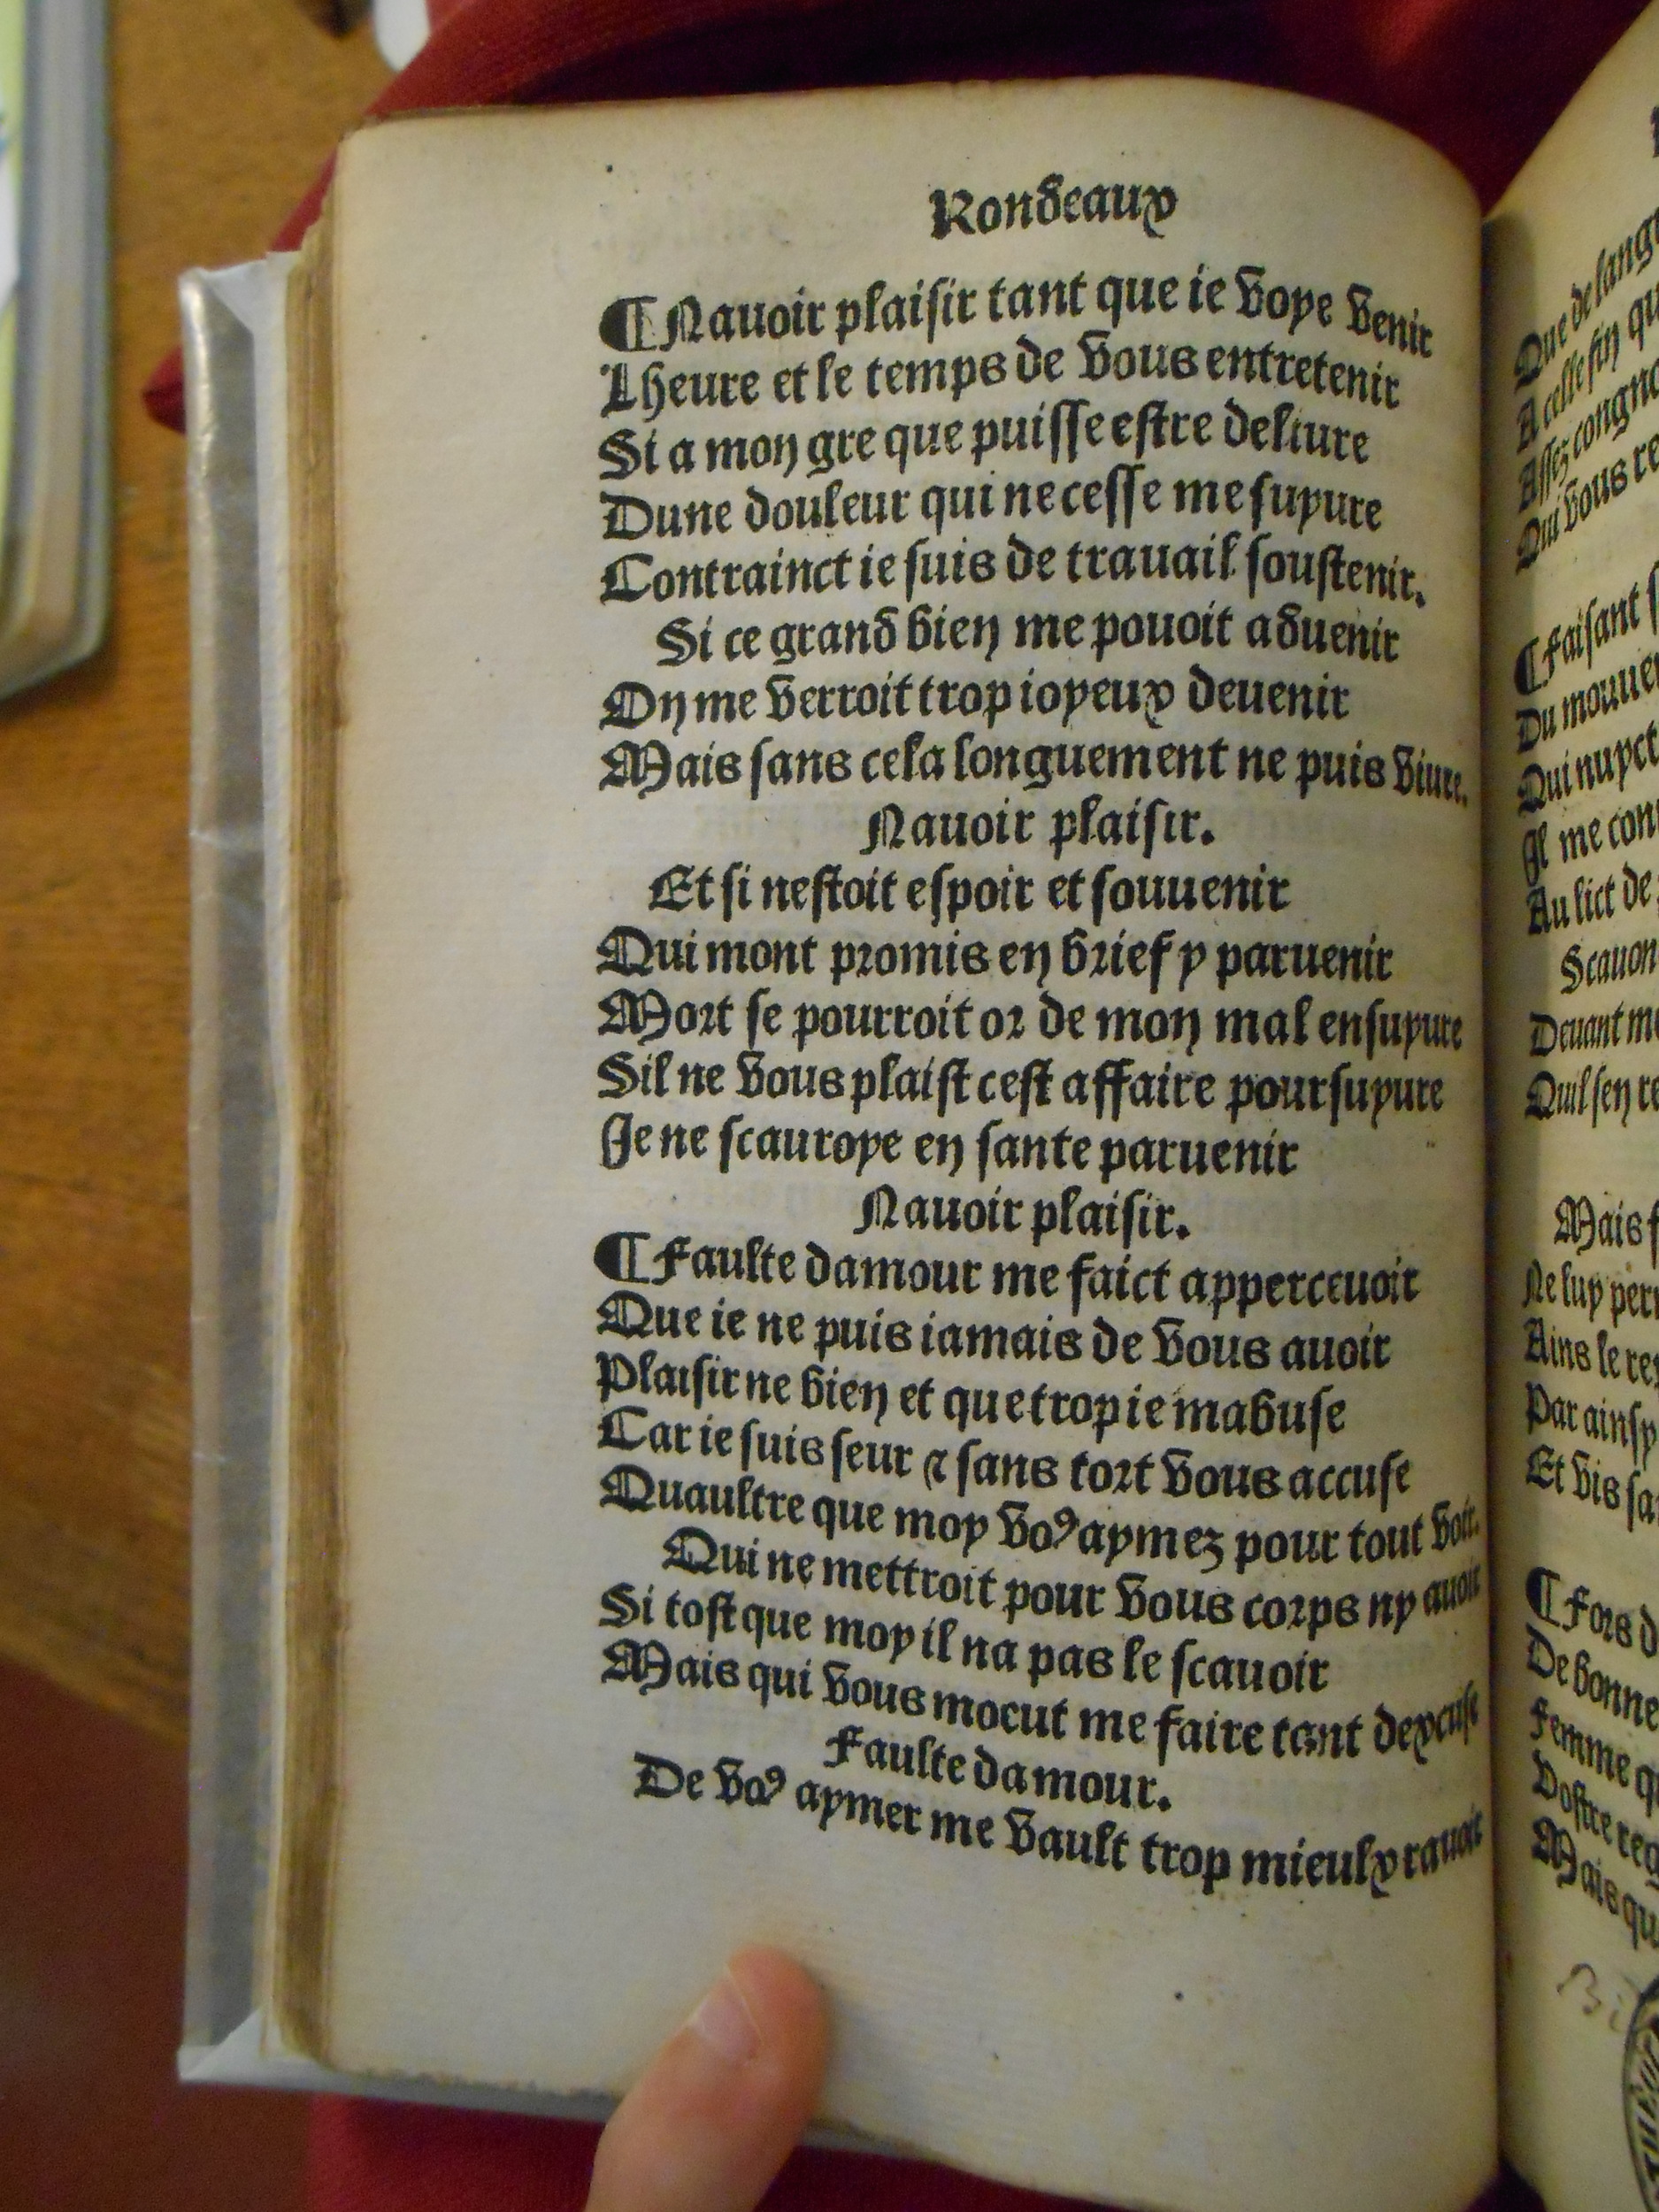 Rondeaux
¶Nauoir plaisir tant que ie voye venir
Lheure et le temps de vous entretenir
Si a mon gre que puisse estre deliure
Dune douleur qui ne cesse me suyure
Contrainct ie suis de trauail soustenir.
Si ce grand bien me pouoit aduenir
On me verroit trop ioyeux deuenir
Mais sans cela longuement ne puis viure.
Nauoir plaisir.
Et si nestoit espoir et souuenir
Qui mont promis en brief y paruenir
Mort se pourroit or de mon mal ensuyure
Sil ne vous plaist cest affaire poursuyure
Je ne scauroye en sante paruenir
Nauoir plaisir.
¶Faulte damour me faict apperceuoir
Que ie ne puis iamais de vous auoir
Plaisir ne bien et que trop ie mabuse
Car ie suis seur ⁊ sans tort vous accuse
Quaultre que moy voꝰ aymez pour tout voir.
Qui ne mettroit pour vous corps ny auoir
Si tost que moy il na pas le scauoir
Mais qui vous mocut me faire tant dexcuse
Faulte damour.
De voꝰ aymer me vault trop mieulx rauoir
Que de
A celle fin
Assez
Qui vous
¶Faisant
Du
Qui nuyct
Il me
Au lict de
Scauon
Deuant
Quil sen
Mais
Ne luy
Ains le
Par ainsy
Et vis
¶Fors
De bonne
Femme
Vostre
Mais